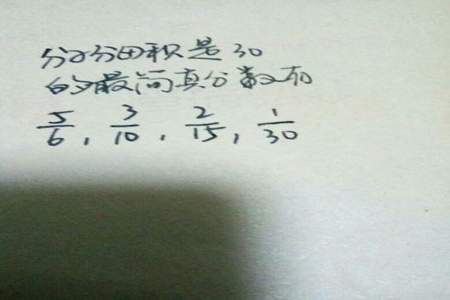 分子分母积是30
的最简真分数有
5/6, 3/10, 2/15, 1/30